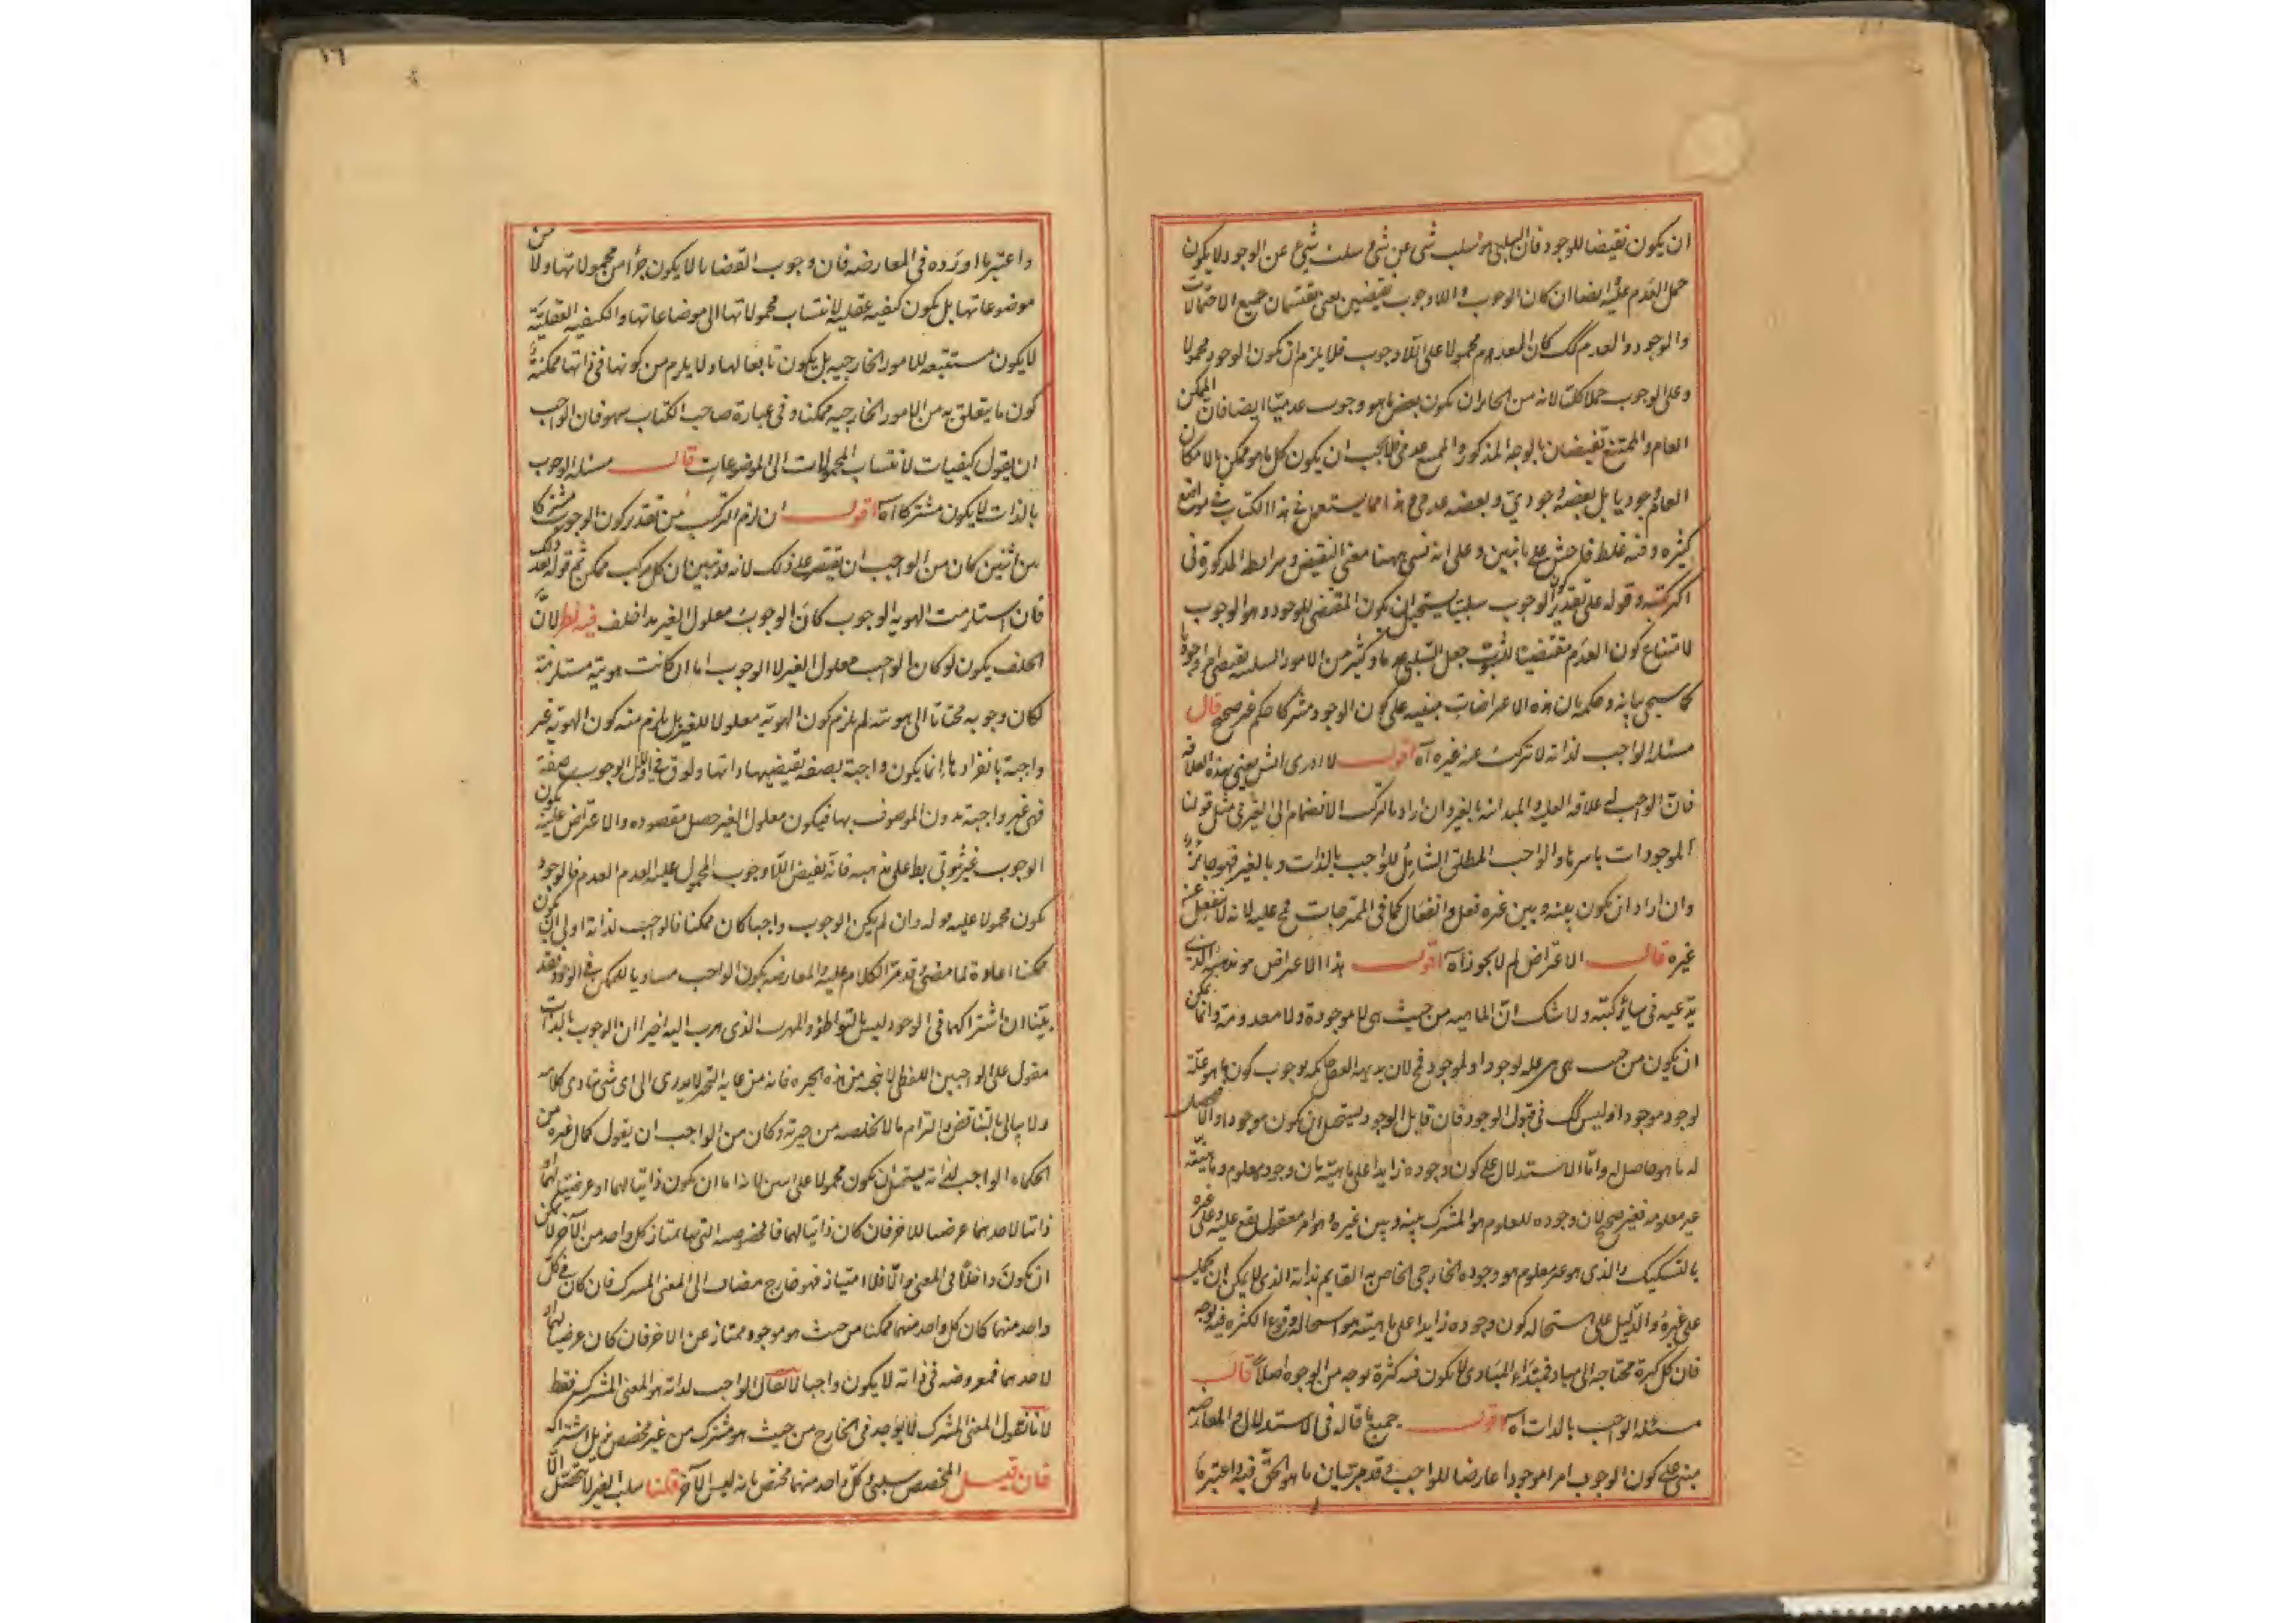 ان يكون نقيضا للوجود فان السلبى هو سلب شى عن شى و سلب شى عن الوجود لا يكون
حمل العدم عليه ايضا ان كان الوجوب و اللاوجوب نقيضين يعنى يقتسمان جميع الاحتمالات
والوجود والعدم كك كان المعدوم محمولا على اللاوجوب فلا يلزم ان يكون الوجود محمولا
وعلى الوجوب حملا كليا لانه من الجايز ان يكون بعض ما هو وجوب عدميا ايضا فان الممكن
العام والممتنع نقيضان بالوجه المذكور والممتنع عدمى فلا يجب ان يكون كل ما هو ممكن بالامكان
العام وجوديا بل بعضه وجودى وبعضه عدمى هذا مما يستعمل فى هذا الكتاب فى مواضع
كثيره وفيه غلط فاحش على ما تبين وعلى انه نسى ههنا معنى النقيض وشرايطه المذكورة فى
اكثر كتبه وقوله على تقدير كون الوجوب سلبيا يستحيل ان يكون المقتضى للوجود وهو الوجوب
لامتناع كون العدم مقتضيا للثبوت جعل السلبى هو ما وكثير من الامور السلبيه يقتضى امرا وجوديا
كما سيجى بيانه وحكمه بان هذه الاعتراضات مبنيه على كون الوجود مشتركا حكم غير صحيح قال
مسئله الواجب لذاته لا تتركب عنه غيره آه اقول لا ادرى ايش يعنى بهذه العلاقه
فان الواجب له علاقه العليه والمبدائية بالغير وان اراد بالتركب الانضمام الى الغير فى مثل قولنا
الموجودات باسرها والواجب المطلق الشامل للواجب بالذات وبالغير فهو جائز
وان اراد ان يكون بينه وبين غيره فعل وانفعال كما فى الممتزجات فمح عليه لانه لا ينفعل عن
غيره قال الاعتراض لم لا يجوز آه اقول هذا الاعتراض هو مذهبه الذى
يدعيه فى سائر كتبه ولا شك ان الماهيه من حيث هى لا موجودة ولا معدومة وانما يمكن
ان يكون من حيث هى هى علة لوجود او لموجود فح لان بديهة العقل حاكمه بوجوب كون ما هو علة
لوجود موجودا وليس كك فى قبول الوجود فان قابل الوجود يستحيل ان يكون موجودا والا فيحصل
له ما هو حاصل له واما الاستدلال على كون وجوده زايدا على ماهيته بان وجوده معلوم وماهيته
غير معلومه فغير صحيح لان وجوده المعلوم هو المشترك بينه وبين غيره وهو امر معقول يقع عليه وعلى غيره
بالتشكيك والذى هو غير معلوم هو وجوده الخارجى الخاص به القايم بذاته الذى لا يمكن ان يحمل
على غيره والدليل على استحاله كون وجوده زايدا على ماهيته هو استحاله وقوع الكثره فيه بوجه
فان كل كثرة محتاجه الى مباد فمبتداء المبادى لا يكون فيه كثرة بوجه من الوجوه اصلا قال
مسئله الواجب بالذات آه اقول جميع ما قاله فى الاستدلال والمعارضه
مبنى على كون الوجوب امرا موجودا عارضا للواجب وقد مر بيان ما هو الحق فيه واعتبر ما
١٦
واعتبر ما اورده فى المعارضه فان وجوب القضايا لا يكون جزأ من محمولاتها ولا من
موضوعاتها بل يكون كيفيه عقليه لانتساب محمولاتها الى موضاعاتها والكيفيه العقليّة
لا يكون مستتبعه للامور الخارجيه بل يكون تابعا لها ولا يلزم من كونها فى ذاتها ممكنة
كون ما يتعلق به من الامور الخارجيه ممكنا وفى عبارة صاحب الكتاب سهو فان الواجب
ان يقول كيفيات لانتساب المحمولات الى الموضوعات قال مسئله الوجوب
بالذات لا يكون مشتركا آه اقول ان لزم التركب من تقدير كون الوجوب مشتركا
بين اثنين كان من الواجب ان يقتصر على ذلك لانه قد تبين ان كل مركب ممكن ثم قوله بعد ذلك
فان استلزمت الهويه الوجوب كان الوجوب معلول الغير هذا خلف فيه نظر لانّ
الخلف يكون لو كان الواجب معلول الغير لا الوجوب اما ان كانت هويته مستلزمة
لكان وجوبه محتاجا الى هويته لم يلزم كون الهوية معلولا للغير بل يلزم منه كون الهوية غير
واجبة بانفرادها انما يكون واجبة بصفه تقتضيها ذاتها ولو ق فى الاول الوجوب صفة
فهى غير واجبة بدون الموصوف بها فيكون معلول الغير حصل مقصوده والاعتراض عليه يكون
الوجوب غير ثبوتى بط على مذهبه فانه نقيض اللاوجوب المحمول عليه العدم فالوجود
يكون محمولا عليه قوله وان لم يكن الوجوب واجبا كان ممكنا فالواجب لذاته اولى ان يكون
ممكنا اعادة لما مضى وقد مر الكلام عليه والمعارضه بكون الواجب مساويا للممكن فى الوجود فقد
بيّنا ان اشتراكهما فى الوجود ليس بالتواطؤ والمهرب الذى هرب اليه اخيرا ان الوجوب بالذات
مقول على الواجبين اللفظى لا ينجيه من هذه الحيره فانه من غاية التحير لا يدرى الى اى شى تادى كلامه
ولا يبالى بالتناقض والتزام ما لا يخلصه من حيرته وكان من الواجب ان يقول كما قال غيره من
الحكماء الواجب لذاته يستحيل ان يكون محمولا على اثنين لانه اما ان يكون ذاتيا لهما او عرضيا لهما او
ذاتيا لاحدهما عرضيا للاخر فان كان ذاتيا لهما فالخصوصيه التى بها يمتاز كل واحد من الآخر لا يمكن
ان يكون داخلا فى المعنى والّا فلا امتياز فهو خارج مضاف الى المعنى المشترك فان كان فى كلّ
واحد منهما كان كل واحد منهما ممكنا من حيث هو موجود ممتاز عن الاخر فان كان عرضيا لهما او
لاحدهما فمعروضه فى ذاته لا يكون واجبا لا يقال الواجب لذاته هو المعنى المشترك فقط
لانا نقول المعنى المشترك لا يوجد فى الخارج من حيث هو مشترك من غير مخصص يزيل اشتراكه
فان قيل المخصص سلبى وكل واحد منهما مختص بانه ليس الآخر قلنا سلب الغير لا يتحصل الّا